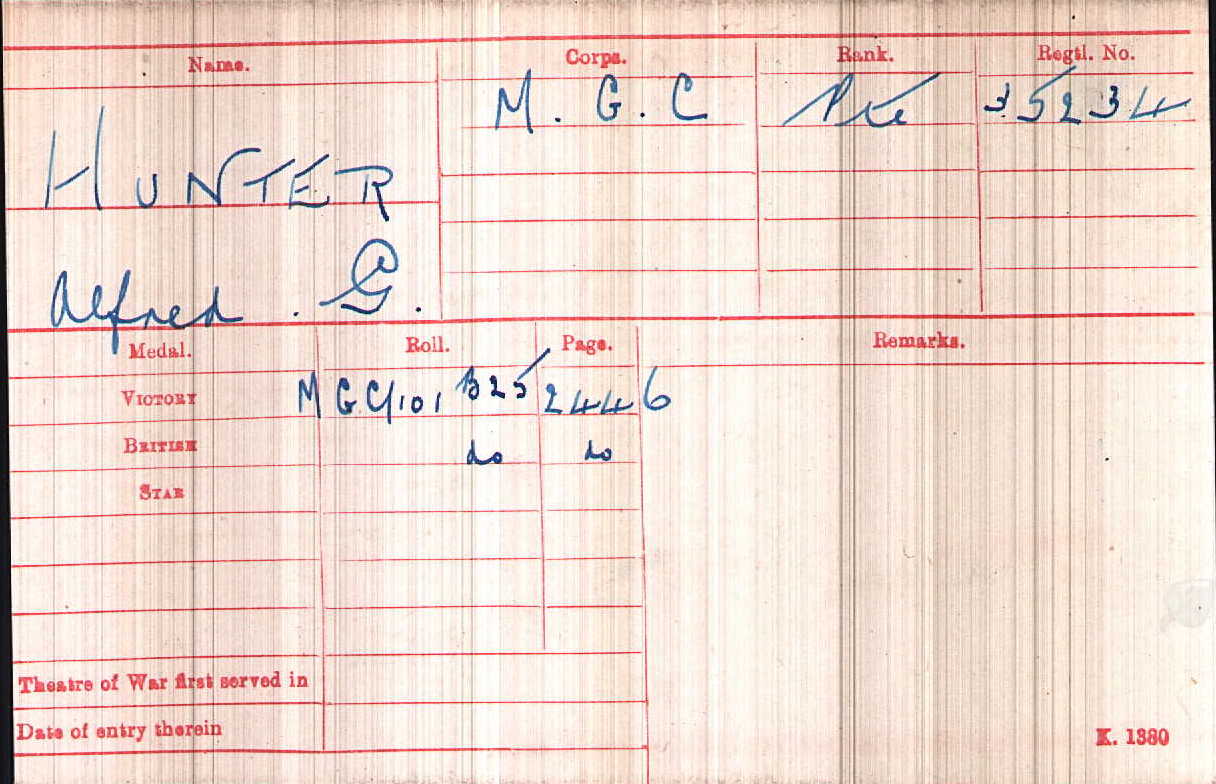 Name. Corps. Rank. Regtl. No.
M. G. C Pte 35234
HUNTER
Alfred. G.
Medal. Roll. Page. Remarks.
VICTORY MGC/101 B25 2446
BRITISH do do
STAR
Theatre of War first served in
Date of entry therein
K. 1380